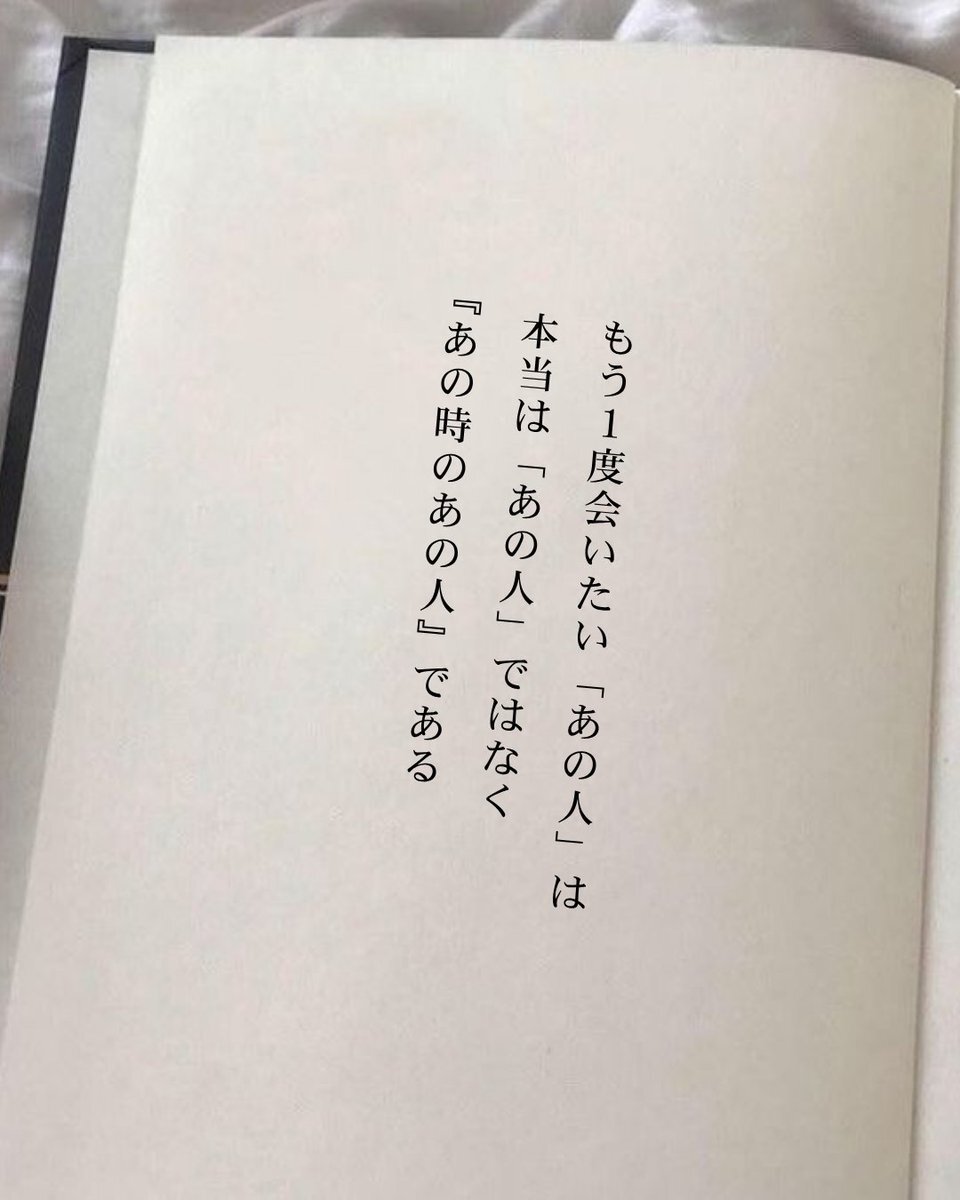 もう1度会いたい「あの人」は
本当は「あの人」ではなく
『あの時のあの人』である